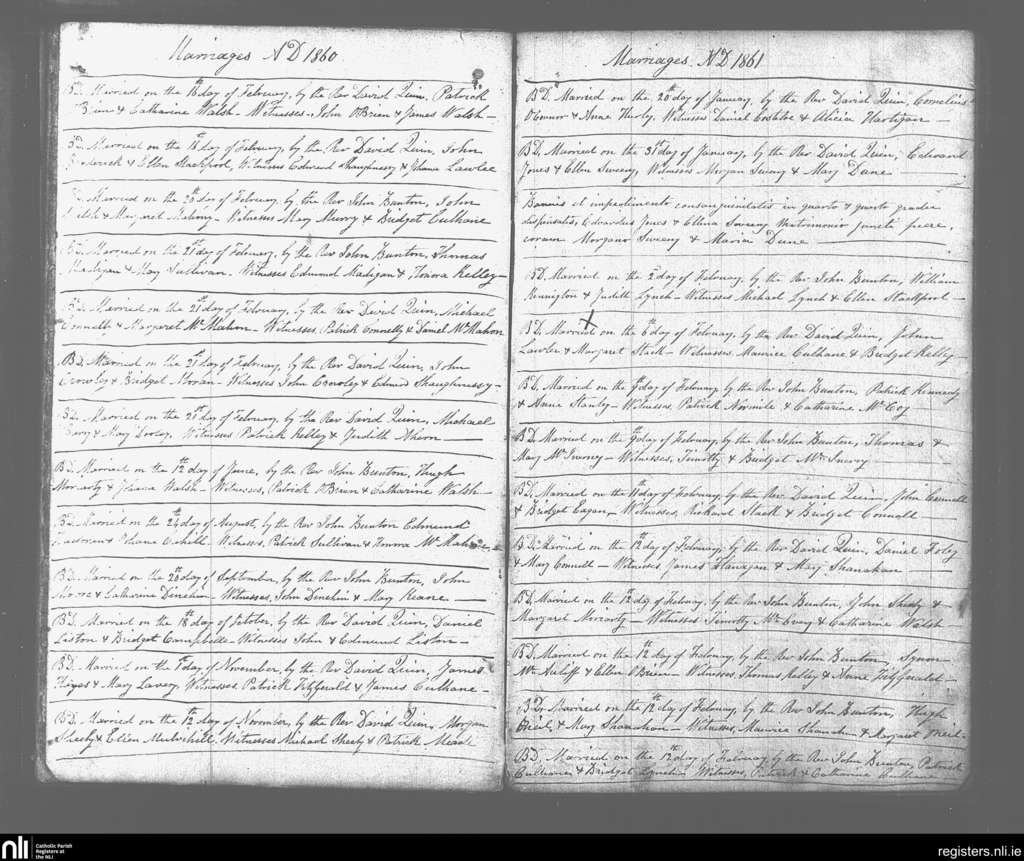 Marriages AD 1860
BD. Married on the 16th day of February, by the Rev David Quin, Patrick
Brien & Catharine Walsh - Witnesses, John O'Brien & James Walsh -
BD. Married on the 18th day of February, by the Rev David Quin, John
& Ellen Stackpool, Witnesses Edmund Shaughnessy & Johana Lawlee
Married on the 20th day of February, by the Rev John Bunton, John
& Margaret Mahony - Witnesses Mary Murry & Bridget Culhane
BD. Married on the 21st day of February, by the Rev John Bunton, Thomas
Madigan & Mary Sullivan. Witnesses Edmund Madigan & Honora Kelley -
BD. Married on the 21st day of February, by the Rev David Quin, Michael
Connelly & Margaret McMahon - Witnesses, Patrick Connelly & Daniel McMahon
BD. Married on the 21st day of February, by the Rev David Quin, John
Crowley & Bridget Moran - Witnesses John Crowley & Edmund Shaughnessy -
BD. Married on the 21st day of February, by the Rev David Quin, Michael
& Mary Dooley, Witnesses Patrick Kelley & Judith
BD. Married on the 12th day of June, by the Rev John Bunton, Hugh
Moriarty & Johana Walsh - Witnesses, Patrick O'Brien & Catharine Walsh -
BD. Married on the 24th day of August, by the Rev John Bunton Edmund
& Johana Witnesses, Patrick Sullivan & Honora McMahon
BD. Married on the 20th day of September, by the Rev John Bunton, John
& Catharine Dinehin - Witnesses, John Dinehin & Mary Keane -
BD. Married on the 18th day of October, by the Rev David Quin, Daniel
Liston & Bridget Campbell - Witnesses John & Edmund Liston -
BD. Married on the 1st day of November, by the Rev David Quin, James
Hayes & Mary Lavery, Witnesses, Patrick FitzGerald & James Culhane -
BD. Married on the 12th day of November, by the Rev David Quin, Morgan
Sheehy & Ellen Mulvihill, Witnesses Michael Sheehy & Patrick Meade
Marriages. AD 1861
BD. Married on the 20th day of January, by the Rev David Quin, Cornelius
O'Connor & Anne Hurly, Witnesses Daniel Costeloe & Alicia Hartigan -
BD. Married on the 31st day of January, by the Rev David Quin, Edward
Jones & Ellen Sweeny, Witnesses Morgan Sweeny & Mary Dune
Bannis et impedimento consanguinitatis in quarto & quarto gradu
dispensatis, Edwardus Jones & Ellena Sweeny Matrimonio juncti fuere,
coram Morgano Sweeny & Maria Dune
BD. Married on the 2nd day of February, by the Rev John Bunton, William
Bennington & Judith Lynch - Witnesses Michael Lynch & Ellen Stackpool -
BD. Married on the 6th day of February, by the Rev David Quin, John
Lawlee & Margaret Stack - Witnesses Maurice Culhane & Bridget Kelley
BD. Married on the 9th day of February, by the Rev John Bunton, Patrick Kennedy
& Anne Hanly - Witnesses, Patrick Normile & Catharine McCoy
BD. Married on the 9th day of February, by the Rev John Bunton, Thomas &
Mary McInerney - Witnesses, Timothy & Bridget McInerny
BD. Married on the 11th day of February, by the Rev David Quin, John Connell
& Bridget Eagan - Witnesses, Richard Stack & Bridget Connell
BD. Married on the 12th day of February, by the Rev David Quin, Daniel Foley
& Mary Connell - Witnesses James Flanagan & Mary Shanahan
BD. Married on the 12th day of February, by the Rev John Bunton, John Sheehy &
Margaret Moriarty - Witnesses Timothy & Catharine Walsh
BD. Married on the 12th day of February, by the Rev John Bunton, Symon
McAuliffe & Ellen O'Brien - Witnesses, Thomas Kelley & Anne FitzGerald -
BD. Married on the 12th day of February, by the Rev John Bunton, Hugh
O'Neil & Mary Shanahan - Witnesses, Maurice Shanahan & Margaret O'Neil -
BD. Married on the 12th day of February, by the Rev John Bunton, Patrick
Culhane & Bridget Lynchin Witnesses, Patrick & Catharine Culhane
nli
Catholic Parish
Registers at
the NLI
registers.nli.ie